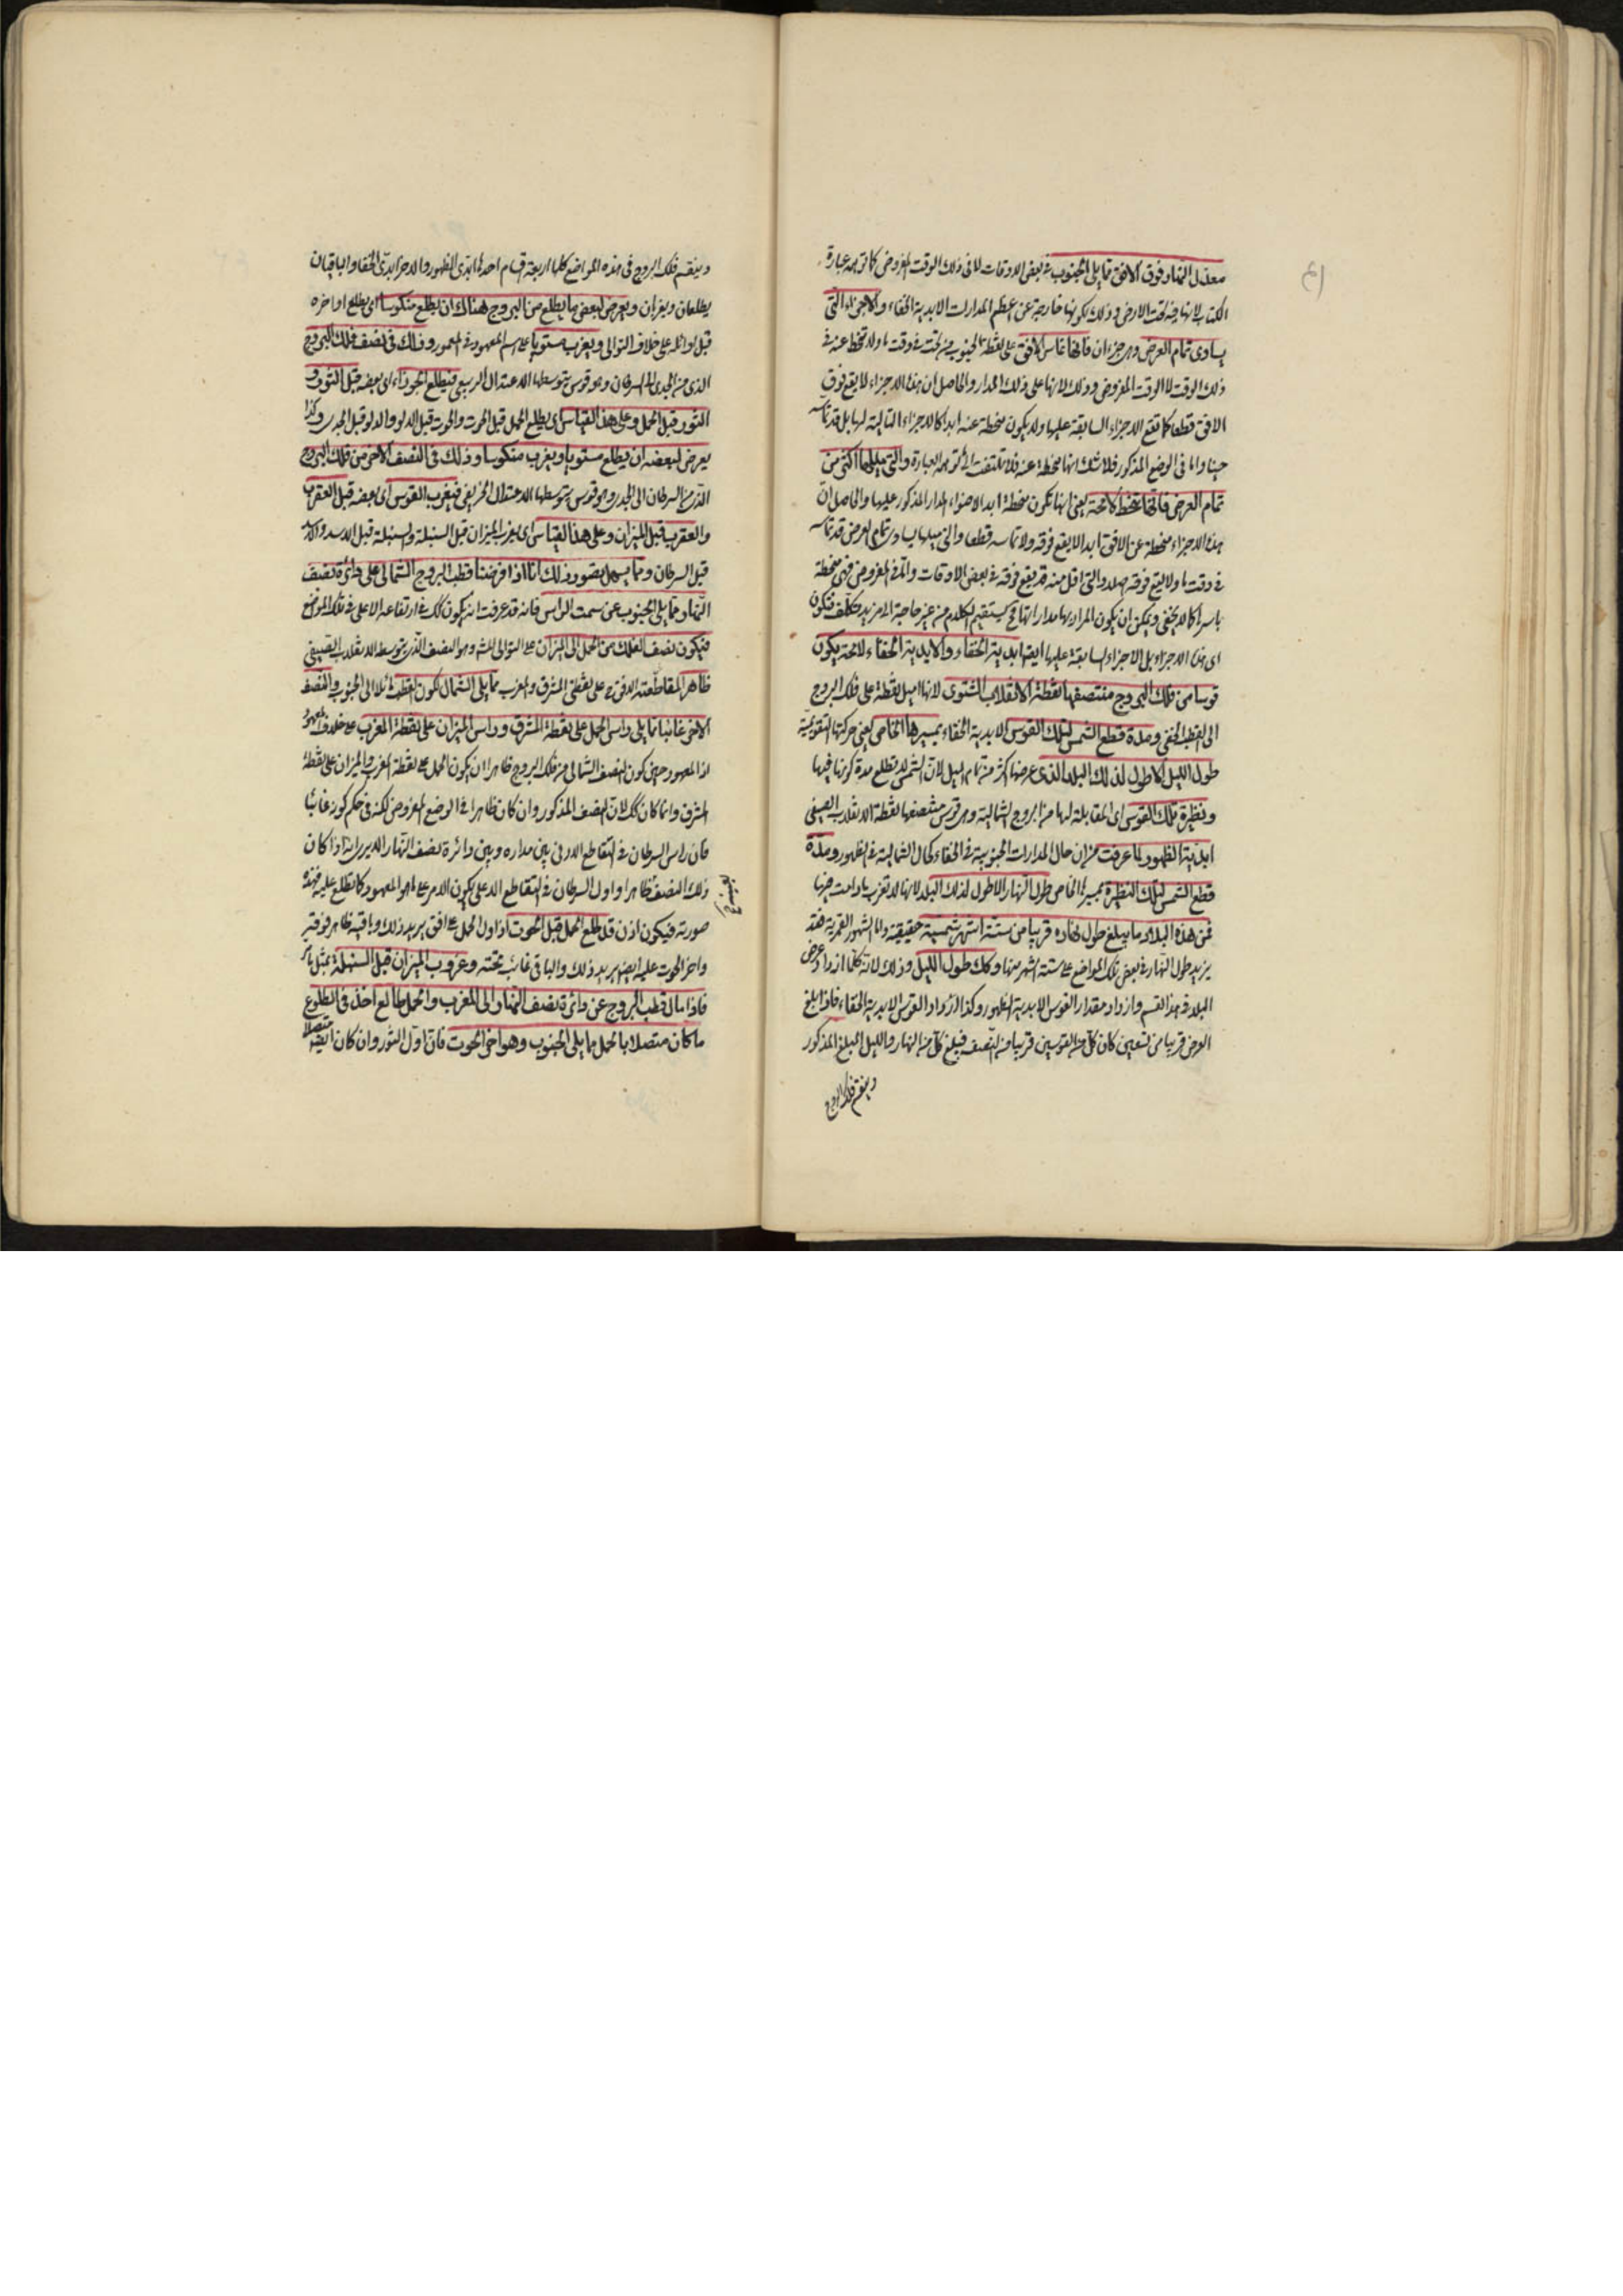 معدل النهار فوق الافق مما يلى الجنوب فى بعض الاوقات لا فى ذلك الوقت المفروض كما توهمه عبارة
الكتاب لانها فيه تحت الارض وذلك لكونها خارجة عن اعظم المدارات الابدية الخفاء والاجزاء التى
يساوى تمام العرض وهى جزءان فانها تماس الافق على نقطة الجنوب من تحته فى وقت ما ولا تنحط عنه فى
ذلك الوقت لا الوقت المفروض وذلك لانها على ذلك المدار والحاصل ان هذه الاجزاء لا يقع فوق
الافق قطعا كما تقع الاجزاء السابقة عليها ولا يكون منحطة عنه ابدا كالاجزاء التالية لها بل قد تماسه
حينا واما فى الوضع المذكور فلا شك انها منحطة عنه فلا تلتفت الى توهمه العبارة والتى ميلها اكثر من
تمام العرض فانها تنحط لا محة يعنى انها تكون منحطة ابدا المدار المذكور عليها والحاصل ان
هذه الاجزاء منحطة عن الافق ابدا لا يقع فوقه ولا تماسه قطعا والتى ميلها يساوى تمام العرض قد تماسه
فى وقت ما ولا يقع فوقه اصلا والتى اقل منه قد يقع فوقه فى بعض الاوقات واما فى المفروض فهى منحطة
باسرها كما لا يخفى ويمكن ان يكون المراد بها مداراتها فح يستقيم الكلام من غير حاجة الى مزيد تكلف فتكون
اى هذه الاجزاء بل الاجزاء السابقة عليها ايضا ابدية الخفاء والابدية الخفاء لا محة يكون
قوسا من فلك البروج منتصفها نقطة الانقلاب الشتوى لانها اميل نقطة على فلك البروج
الى القطب الخفى ومدة قطع الشمس لتلك القوس الابدية الخفاء بمسيرها الخاص يعنى حركتها التقويمية
طول الليل الاطول لذلك البلد الذى عرضه اكثر من تمام الميل لان الشمس لا تطلع مدة كونها فيها
ونظيرة تلك القوس اى المقابلة لها من البروج الشمالية وهى قوس منتصفها نقطة الانقلاب الصيفى
ابدية الظهور لما عرفت من ان حال المدارات الجنوبية فى الخفاء كحال الشمالية فى الظهور ومدة
قطع الشمس لتلك النظيرة بمسيرها الخاص طول النهار الاطول لذلك البلد لانها لا تغرب ما دامت فيها
فمن هذه البلاد ما يبلغ طول نهاره قريبا من ستة اشهر شمسية حقيقية واما الشهور القمرية فقد
يزيد طول النهار فى بعض تلك المواضع على ستة اشهر منها وكك طول الليل وذلك لانه كلما ازداد عرض
البلد فى هذا القسم وازداد مقدار القوس الابدية الظهور وكذا ازداد القوس الابدية الخفاء فاذا بلغ
العرض قريبا من تسعين كان كل من القوسين قريبا من النصف فيبلغ كل من النهار والليل المبلغ المذكور
وينقسم فلك البروج
وينقسم فلك البروج فى هذه المواضع كلها اربعة اقسام احدها ابدى الظهور والاخر ابدى الخفا والباقيان
يطلعان ويغربان ويعرض لبعض ما يطلع من البروج هناك ان يطلع منكوسا اى يطلع اواخره
قبل اوائله على خلاف التوالى ويغرب مستويا على الرسم المعهود فى المعمور وذلك فى نصف فلك البروج
الذى من الجدى الى السرطان وهو قوس يتوسطها الاعتدال الربيعى فيطلع الجوزاء اى بعضه قبل الثور و
الثور قبل الحمل وعلى هذا القياس اى يطلع الحمل قبل الحوت والحوت قبل الدلو والدلو قبل الجدى وكذا
يعرض لبعضه ان يطلع مستويا ويغرب منكوسا وذلك فى النصف الاخر من فلك البروج
الذى من السرطان الى الجدى وهو قوس يتوسطها الاعتدال الخريفى فيغرب القوس اى بعضه قبل العقرب
والعقرب قبل الميزان وعلى هذا القياس اى يغرب الميزان قبل السنبلة والسنبلة قبل الاسد والاسد
قبل السرطان ومما يسهل تصور ذلك انا اذا فرضنا قطب البروج الشمالى على دائرة نصف
النهار مما يلى الجنوب عن سمت الراس فانه قد عرفت انه يكون كك فى ارتفاعه الاعلى فى تلك المواضع
فيكون نصف الفلك من الحمل الى الميزان على التوالى وهو النصف الذى يتوسطه الانقلاب الصيفى
ظاهرا لمقاطعته الافق على نقطتى المشرق والمغرب مما يلى الشمال لكون القطب مائلا الى الجنوب والنصف
الاخر غائبا مما يلى راس الحمل على نقطة المشرق وراس الميزان على نقطة المغرب على خلاف المعهود
اذ المعهود حين كون النصف الشمالى من فلك البروج ظاهرا ان يكون الحمل على نقطة المغرب والميزان على نقطة
المشرق وانما كان كك لان النصف المذكور وان كان ظاهرا فى الوضع المفروض لكنه فى حكم كونه غائبا
فان راس السرطان فى التقاطع الادنى بين مداره وبين دائرة نصف النهار الا يرى انه اذا كان
ذلك النصف ظاهرا واول السرطان فى التقاطع الاعلى يكون الامر على ما هو المعهود كما تطلع عليه فهذه
صورته فيكون اذن قد طلع الحمل قبل الحوت اذ اول الحمل على افق يريد ذلك وباقيه ظاهر فوقه
واخر الحوت عليه ايضا يريد ذلك والباقى غائب تحته وغروب الميزان قبل السنبلة بمثل ما مر
فاذا مال قطب البروج عن دائرة نصف النهار الى المغرب والحمل طالع اخذ فى الطلوع
ما كان متصلا بالحمل مما يلى الجنوب وهو اخر الحوت فان اول الثور وان كان ايضا متصلا